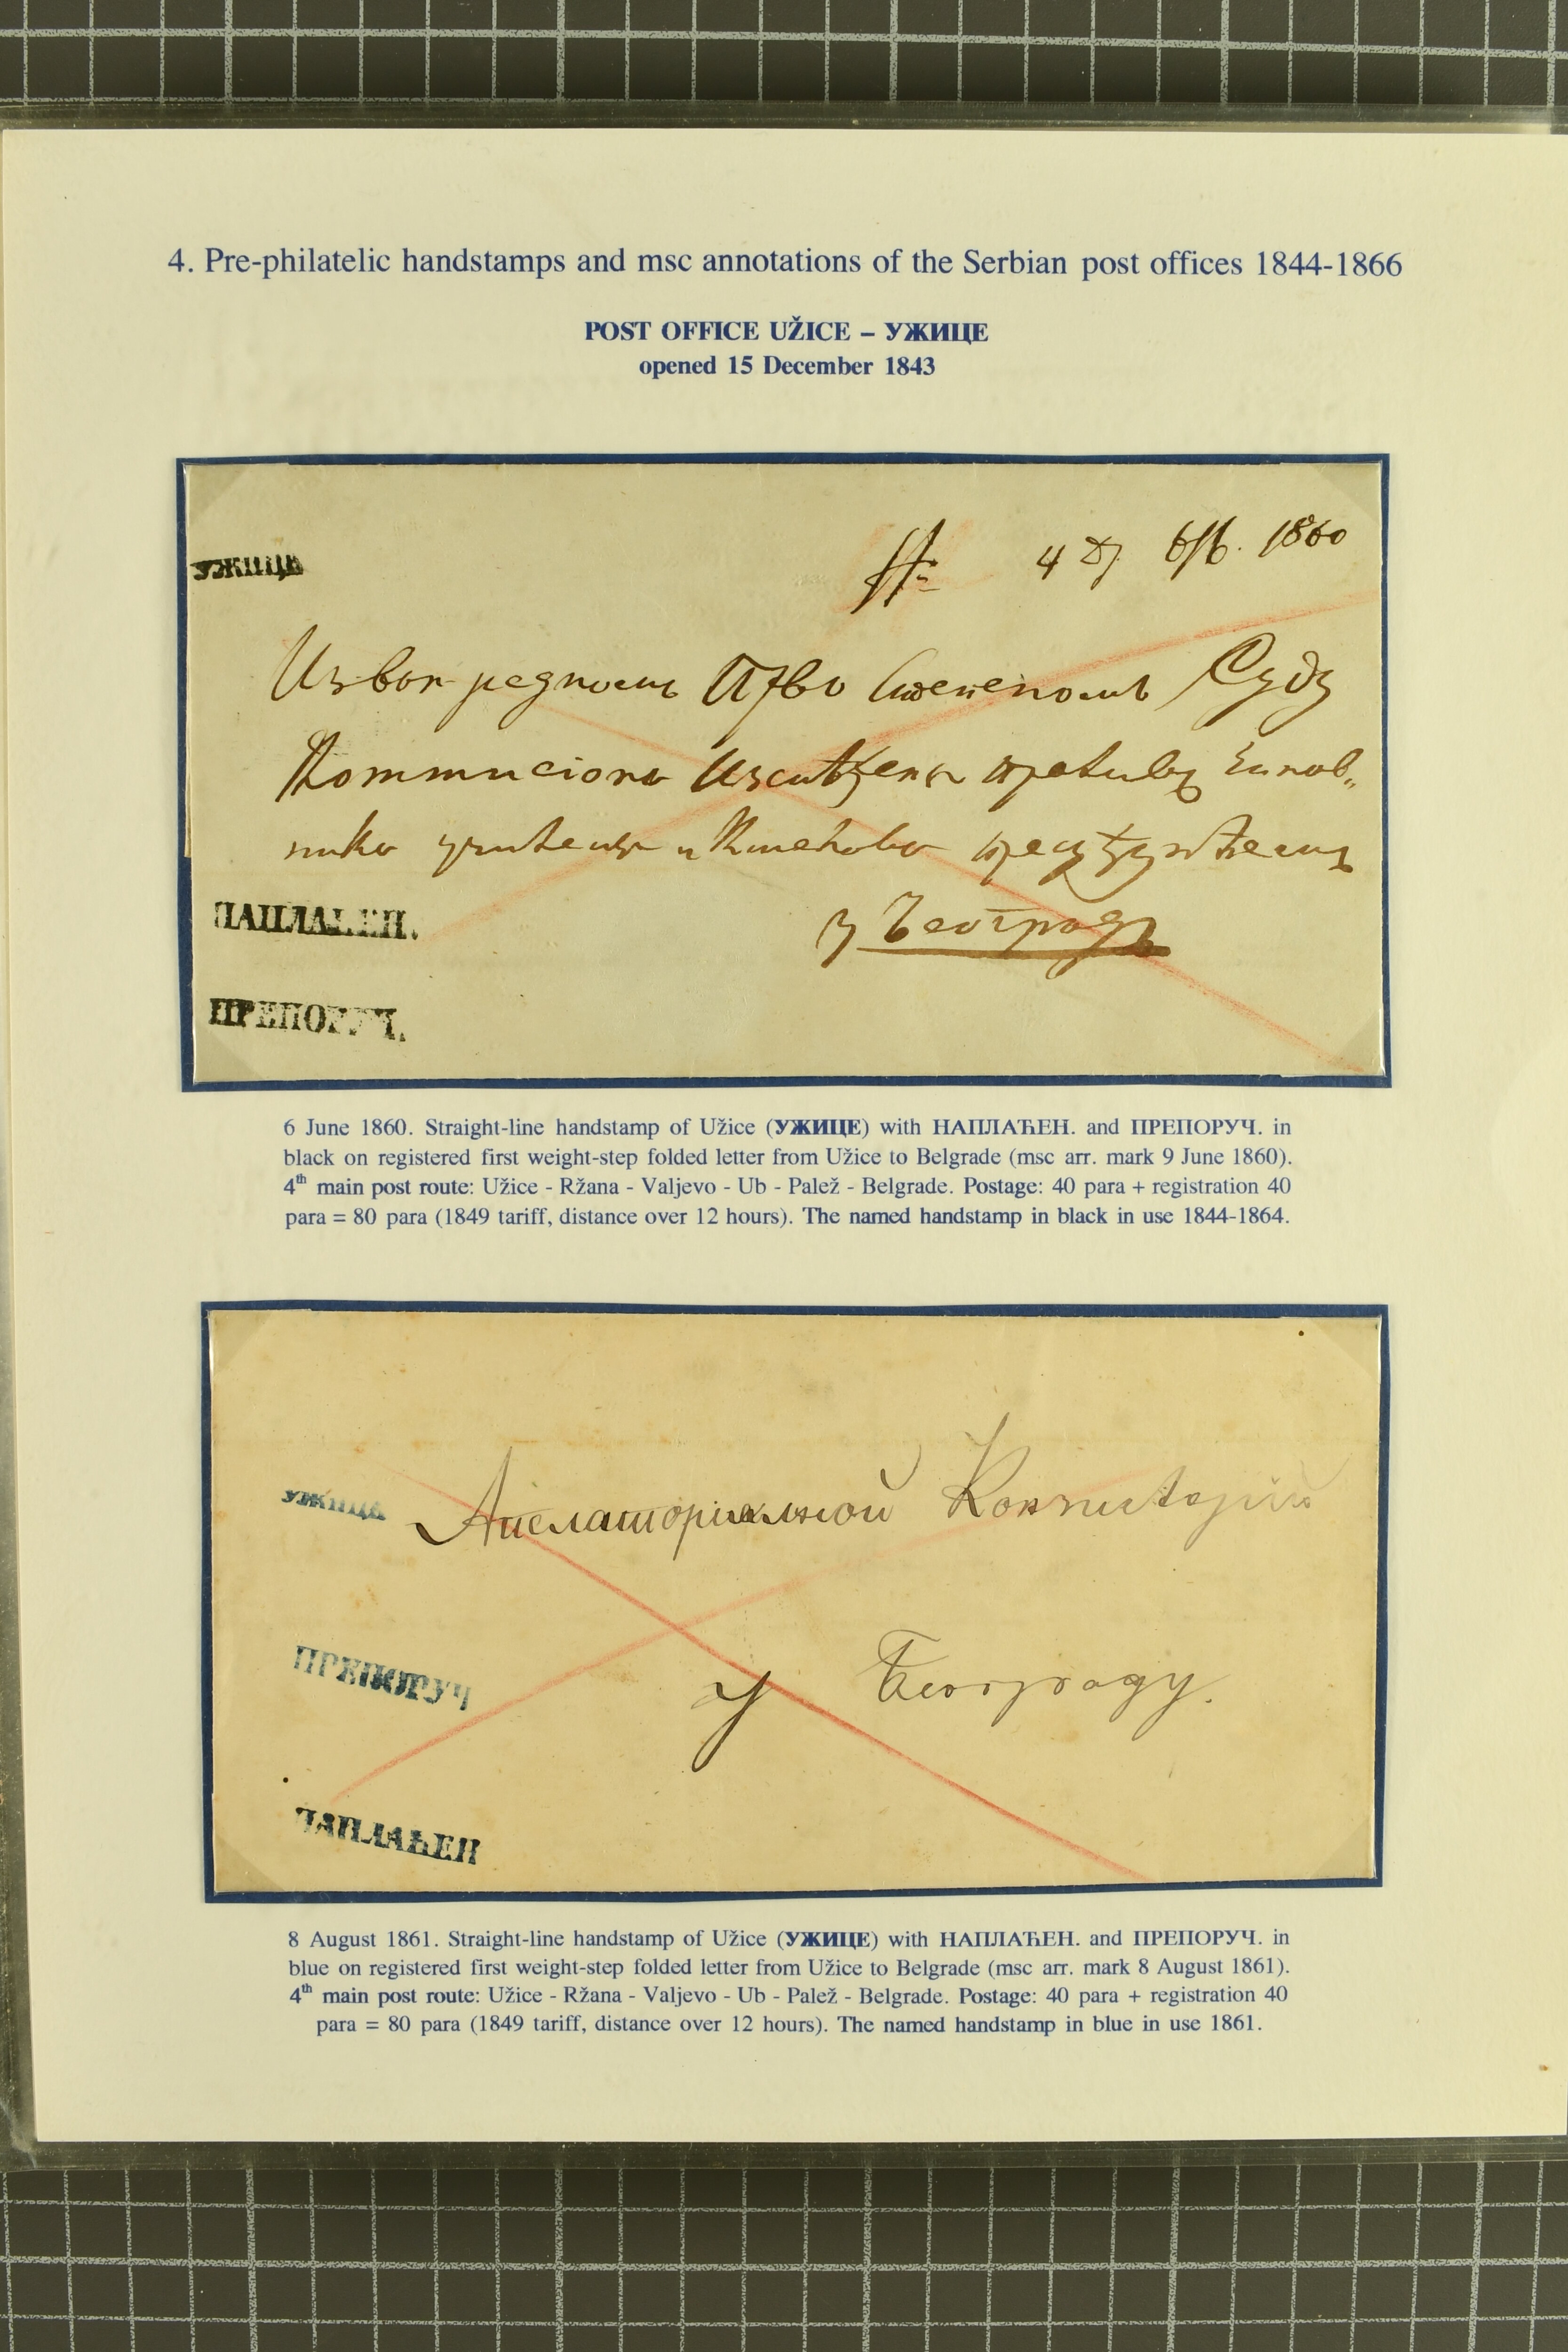 4. Pre-philatelic handstamps and msc annotations of the Serbian post offices 1844-1866
POST OFFICE UŽICE – УЖИЦЕ
opened 15 December 1843
4 6/6. 1860
УЖИЦЕ
Суду
НАПЛАЋЕН.
у Београду
ПРЕПОРУЧ.
6 June 1860. Straight-line handstamp of Užice (УЖИЦЕ) with НАПЛАЋЕН. and ПРЕПОРУЧ. in
black on registered first weight-step folded letter from Užice to Belgrade (msc arr. mark 9 June 1860).
4th main post route: Užice - Ržana - Valjevo - Ub - Palež - Belgrade. Postage: 40 para + registration 40
para = 80 para (1849 tariff, distance over 12 hours). The named handstamp in black in use 1844-1864.
УЖИЦЕ
Апелаториалной
ПРЕПОРУЧ
у Београду.
НАПЛАЋЕН
8 August 1861. Straight-line handstamp of Užice (УЖИЦЕ) with НАПЛАЋЕН. and ПРЕПОРУЧ. in
blue on registered first weight-step folded letter from Užice to Belgrade (msc arr. mark 8 August 1861).
4th main post route: Užice - Ržana - Valjevo - Ub - Palež - Belgrade. Postage: 40 para + registration 40
para = 80 para (1849 tariff, distance over 12 hours). The named handstamp in blue in use 1861.